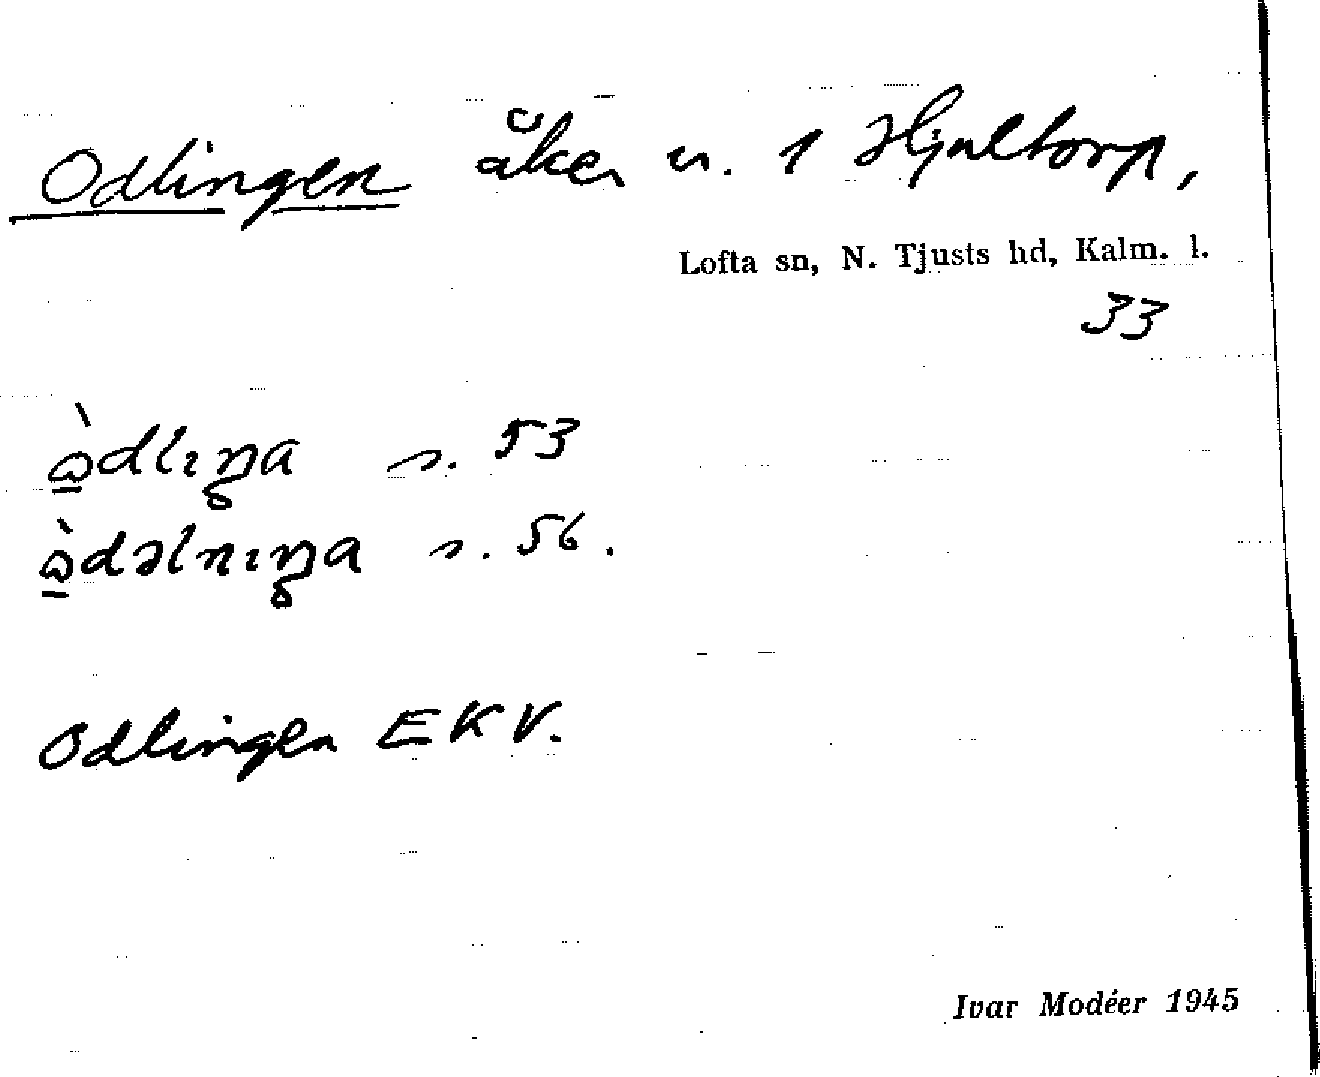 Odlingen åker n. 1 Hjultorp,
Lofta sn, N. Tjusts hd, Kalm. l.
33
s. 53
s. 56.
Odlingen EKV.
Ivar Modéer 1945